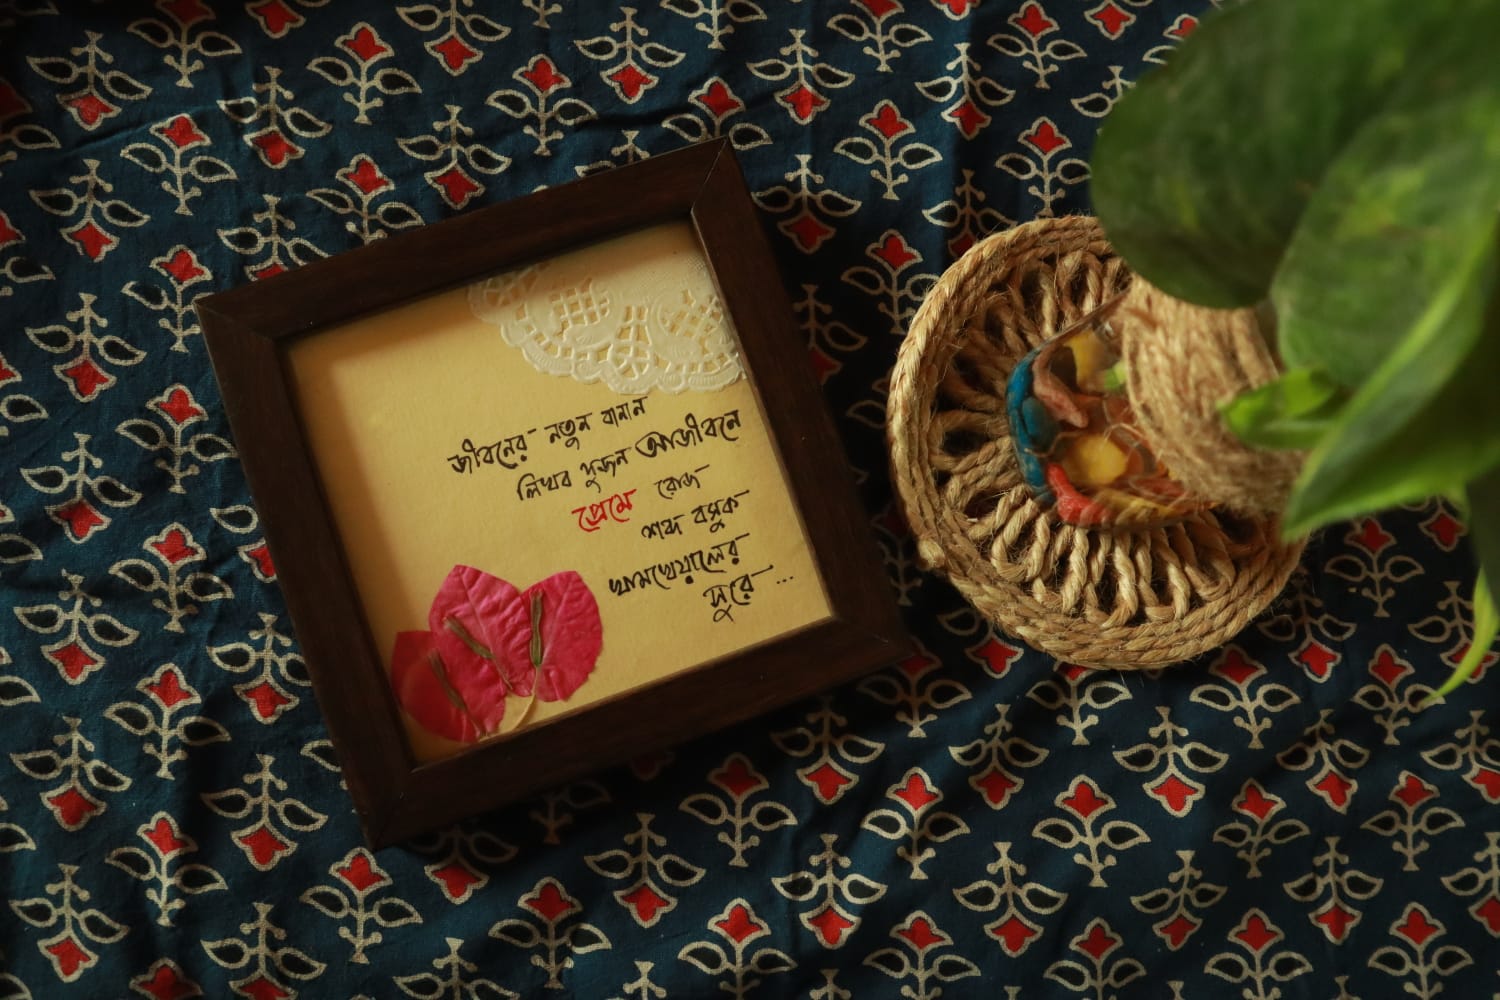 জীবনের নতুন বানান
লিখব দুজন আজীবনে
প্রেমে রোজ
শব্দ বসুক
খামখেয়ালের
সুরে...